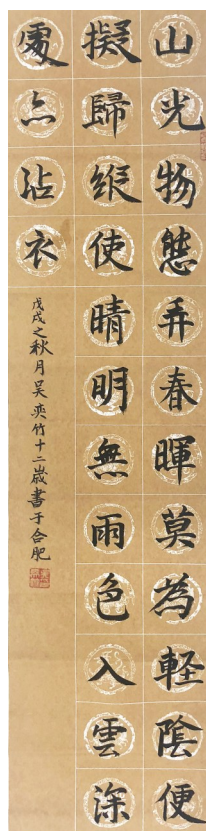 山光物態弄春暉莫為軽陰便
擬歸縦使晴明無雨色入雲深
處亦沾衣
戊戌之秋月吴奕竹十二歳書于合肥